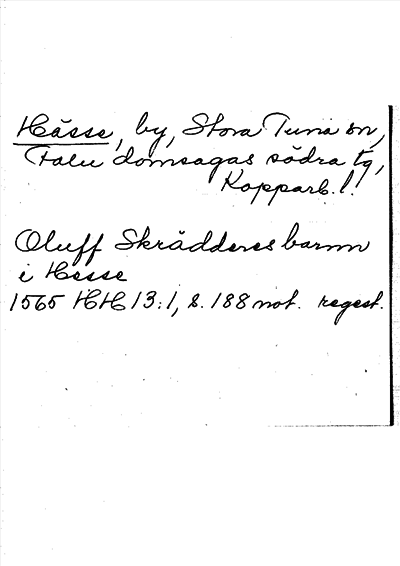 Hässe, by, Stora Tuna sn,
Falu domsagas södra tg,
Kopparb. l.
Oluff Skrädderes barnn
i Hesse
1565 HH 13:1, s. 188 not. regest.